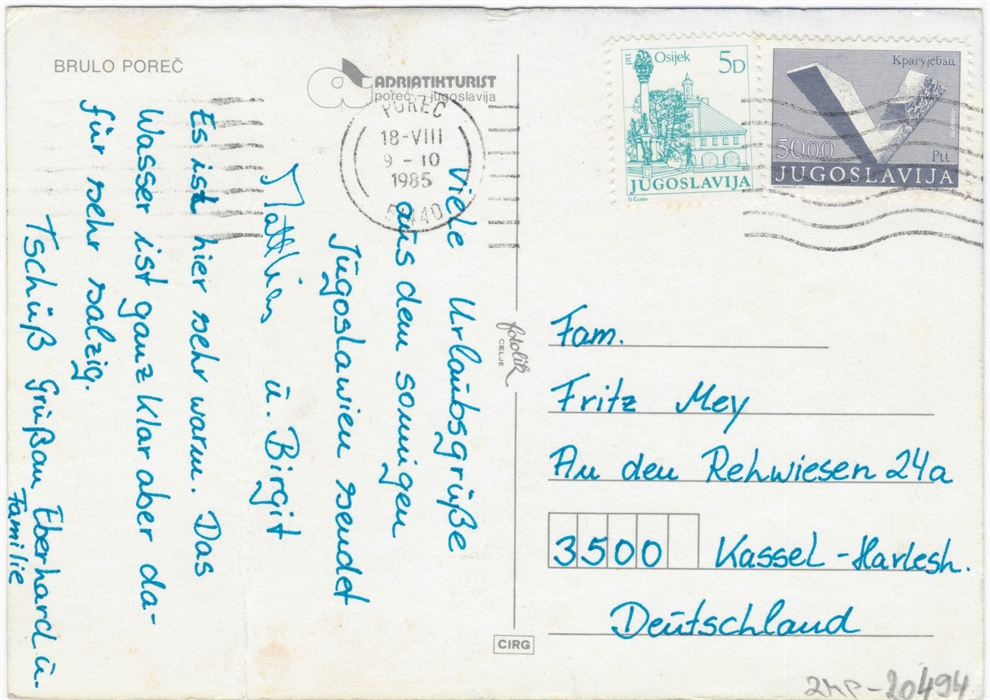 BRULO POREČ
a ADRIATIKTURIST
poreč - jugoslavija
POREČ
18-VIII
9 - 10
1985
ptt Osijek 5D
JUGOSLAVIJA
Крагујевац
5000 Ptt
JUGOSLAVIJA
Viele Urlaubsgrüße
aus dem sonnigen
Jugoslawien sendet
Matthias u. Birgit
Es ist hier sehr warm. Das
Wasser ist ganz klar aber da-
für sehr salzig.
Tschüß Gruß an Eberhard u.
Familie
fotolik
CELJE
Fam.
Fritz Mey
An den Rehwiesen 24a
3500 Kassel - Harlesh.
Deutschland
CIRG
2MP-20494